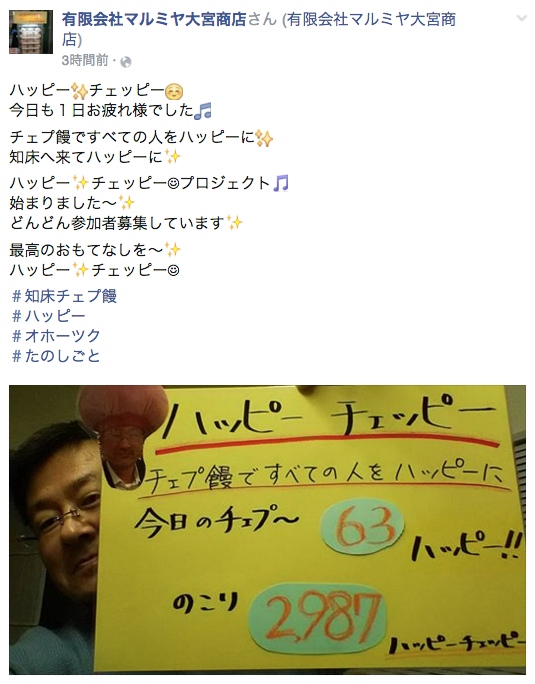 有限会社マルミヤ大宮商店さん (有限会社マルミヤ大宮商
店)
3時間前
ハッピー✨チェッピー☺
今日も１日お疲れ様でした🎵
チェプ饅ですべての人をハッピーに✨
知床へ来てハッピーに✨
ハッピー✨チェッピー☺プロジェクト🎵
始まりました〜✨
どんどん参加者募集しています✨
最高のおもてなしを〜✨
ハッピー✨チェッピー☺
＃知床チェプ饅
＃ハッピー
＃オホーツク
＃たのしごと
ハッピー チェッピー
チェプ饅ですべての人をハッピーに
今日のチェプ〜 63 ハッピー!!
のこり 2,987
ハッピーチェッピー